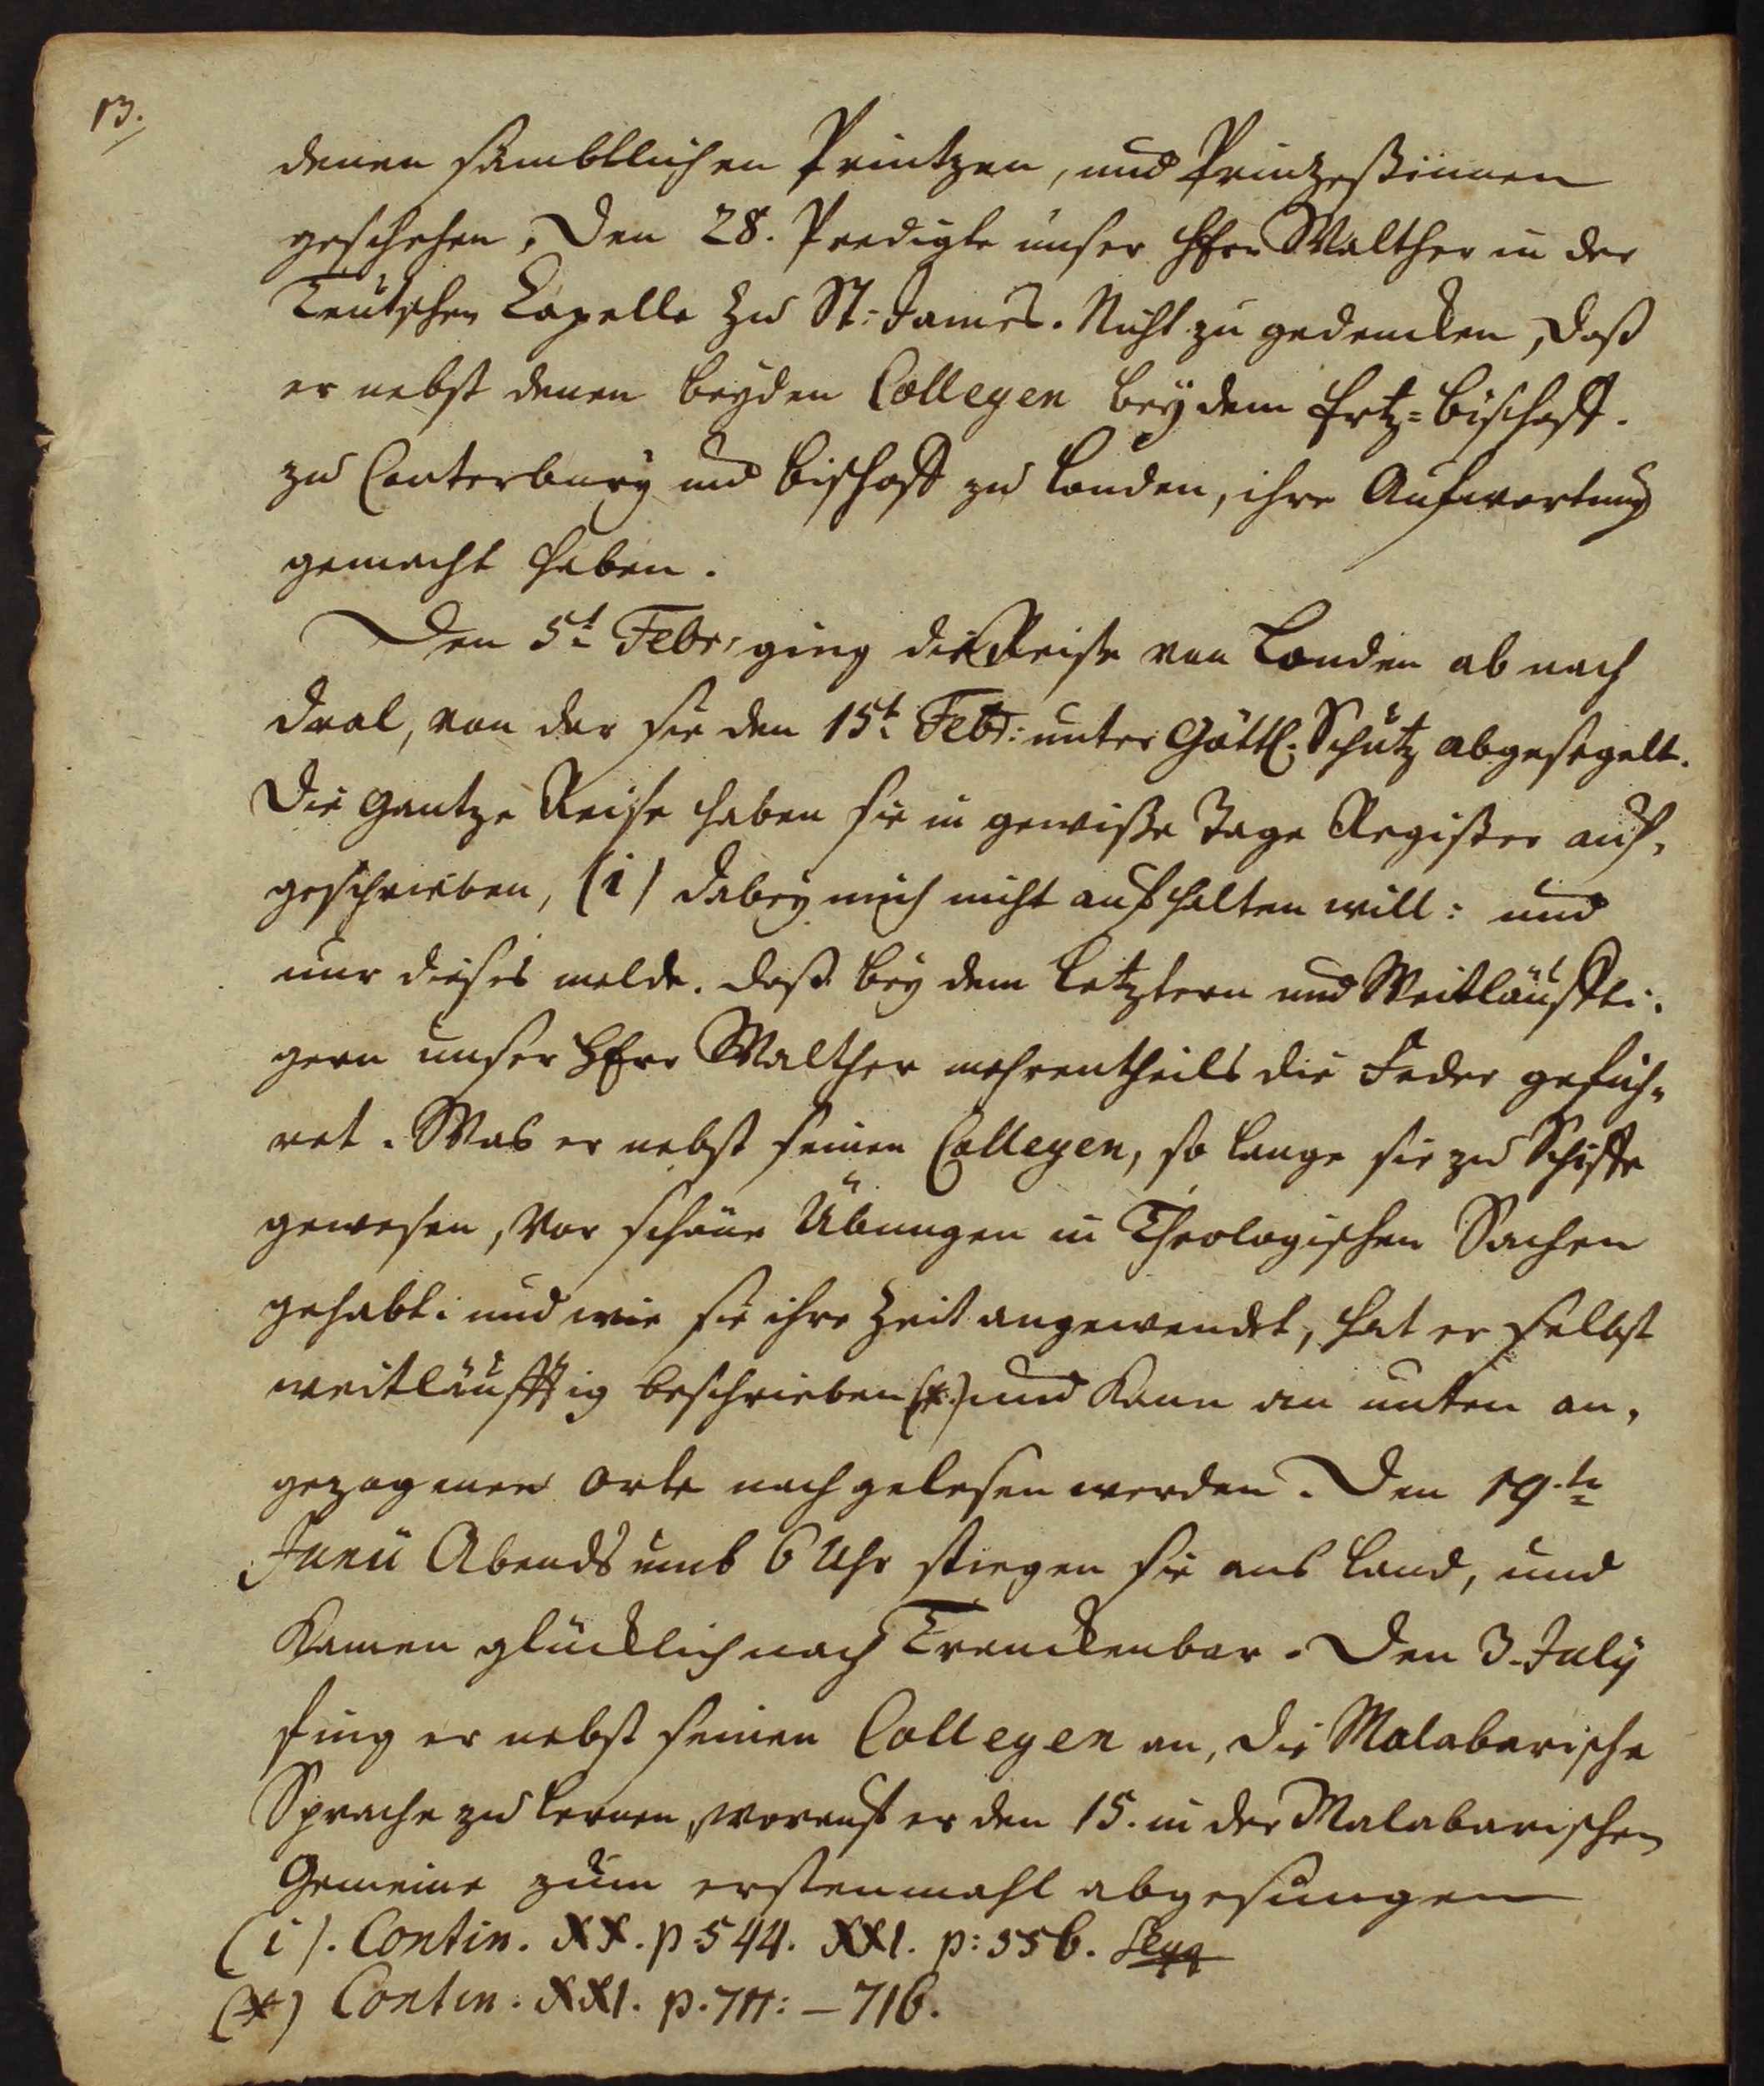 13.
denen sämbtlichen Printzen, und Printzeßinnen
geschehen. Den 28. Predigte unser HErr Walther in der
Teutschen Capelle zu St: James. Nicht zu gedencken, daß
er nebst denen beyden Collegen bey dem Ertz-Bischoff
zu Canterbury und Bischoff zu Londen, ihre Aufwartung
gemacht haben.
Den 5t Febr: ging die Reise von Londen ab nach
Deal, von der sie den 15t Febr: unter Göttl. Schutz abgesegelt.
Die gantze Reise haben sie in gewiße Tage Register auf-
geschrieben, (i) dabey mich nicht aufhalten will: und
nur dieses melde. daß bey dem letztern und Weitläuffti-
gern unser HErr Walther mehrentheils die Feder gefüh-
ret. Was er nebst seinen Collegen, so lange sie zu Schiffe
gewesen, vor schöne Übungen in Theologischen Sachen
gehabt: und wie sie ihre Zeit angewendet, hat er selbst
weitläufftig beschrieben (*) und kann am unten an-
gezognen Orte nachgelesen werden. Den 19.tn
Junii Abends umb 6 Uhr stiegen sie ans Land, und
kamen glücklich nach Trenckenbar. Den 3. July
fing er nebst seinen Collegen an, die Malabarische
Sprache zu lernen, worauf er den 15. in der Malabarischen
Gemeine zum erstenmahl abgesungen
(i). Contin. XX. p 544. XXI. p: 556. seqq
(*) Contin. XXI. p. 711: – 716.